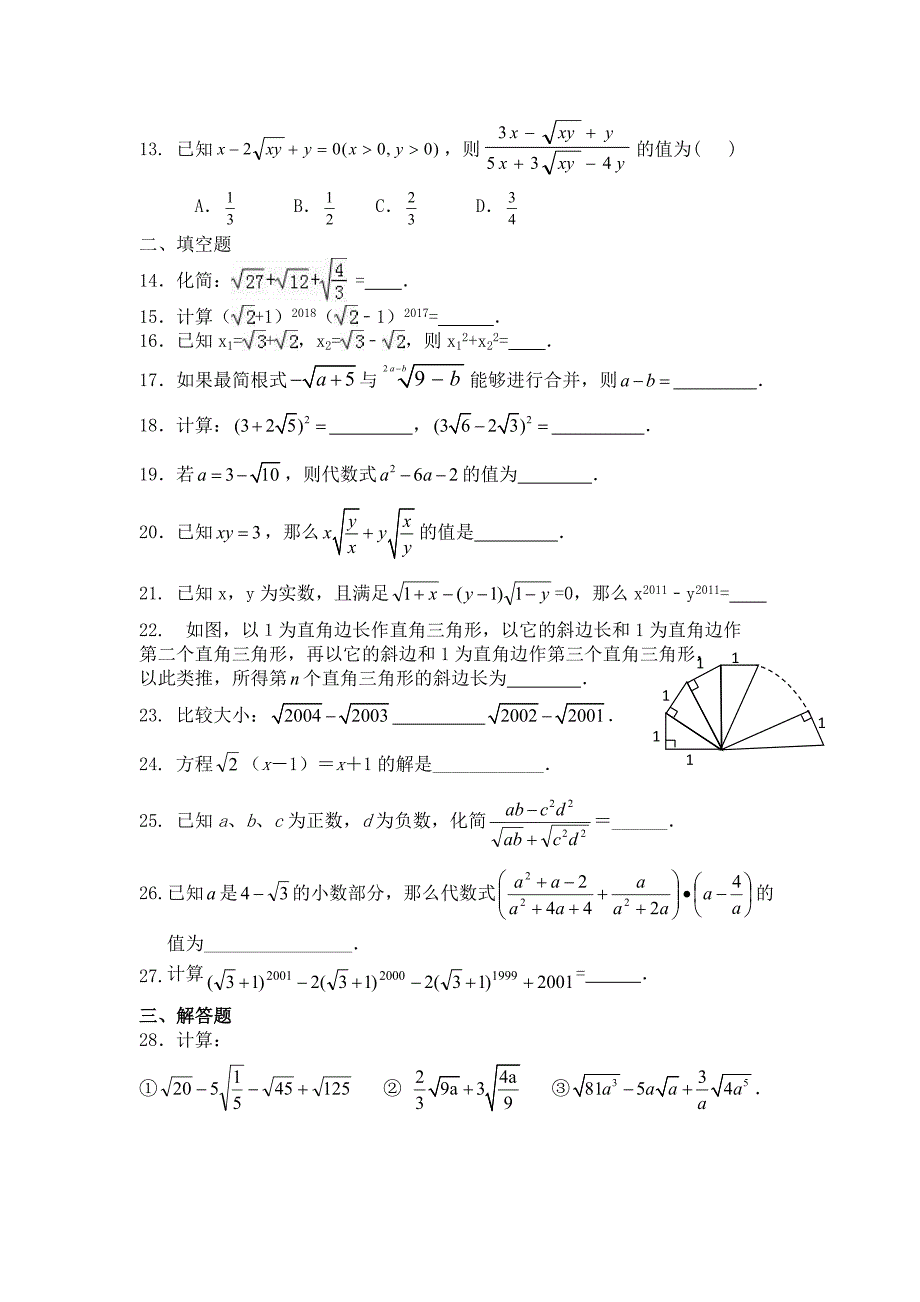 13. 已知 x−2√(xy)+y=0(x>0, y>0)，则 (3x−√(xy)+y)/(5x+3√(xy)−4y) 的值为(　)
A. 1/3　B. 1/2　C. 2/3　D. 3/4
二、填空题
14．化简：√27+√12+√(4/3) =____．
15．计算（√2+1）²⁰¹⁸（√2﹣1）²⁰¹⁷=______．
16．已知 x₁=√3+√2，x₂=√3﹣√2，则 x₁²+x₂²=____．
17．如果最简根式 −√(a+5) 与 ²ᵃ⁻ᵇ√(9−b) 能够进行合并，则 a−b=_________．
18．计算：(3+2√5)²=_________，(3√6−2√3)²=__________．
19．若 a=3−√10，则代数式 a²−6a−2 的值为________．
20．已知 xy=3，那么 x√(y/x)+y√(x/y) 的值是_________．
21. 已知 x，y 为实数，且满足 √(1+x)−(y−1)√(1−y)=0，那么 x²⁰¹¹﹣y²⁰¹¹=____
22. 如图，以 1 为直角边长作直角三角形，以它的斜边长和 1 为直角边作
第二个直角三角形，再以它的斜边和 1 为直角边作第三个直角三角形，
以此类推，所得第 n 个直角三角形的斜边长为________．
1
1
1
1
1
1
23. 比较大小：√2004−√2003__________√2002−√2001．
24. 方程 √2（x－1）＝x＋1 的解是____________．
25. 已知 a、b、c 为正数，d 为负数，化简 (ab−c²d²)/(√(ab)+√(c²d²))＝______．
26.已知 a 是 4−√3 的小数部分，那么代数式 ((a²+a−2)/(a²+4a+4)+a/(a²+2a))•(a−4/a) 的
值为________________．
27.计算 (√3+1)²⁰⁰¹−2(√3+1)²⁰⁰⁰−2(√3+1)¹⁹⁹⁹+2001=______．
三、解答题
28．计算：
①√20−5√(1/5)−√45+√125　② (2/3)√(9a)+3√(4a/9)　③√(81a³)−5a√a+(3/a)√(4a⁵)．